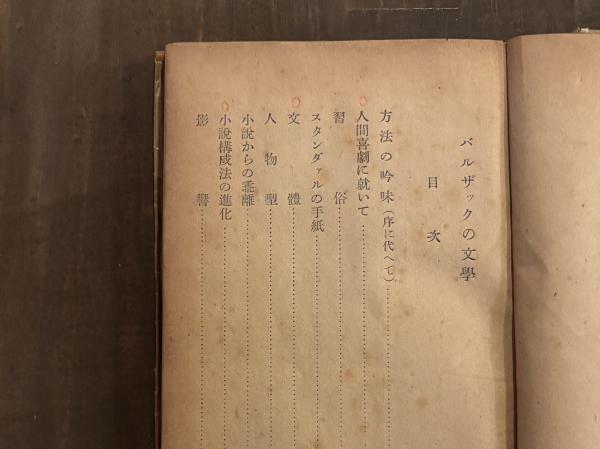 バルザックの文學
目次
方法の吟味(序に代へて)
人間喜劇に就いて
習俗
スタンダァルの手紙
文體
人物型
小說からの乖離
小說構成法の進化
影響